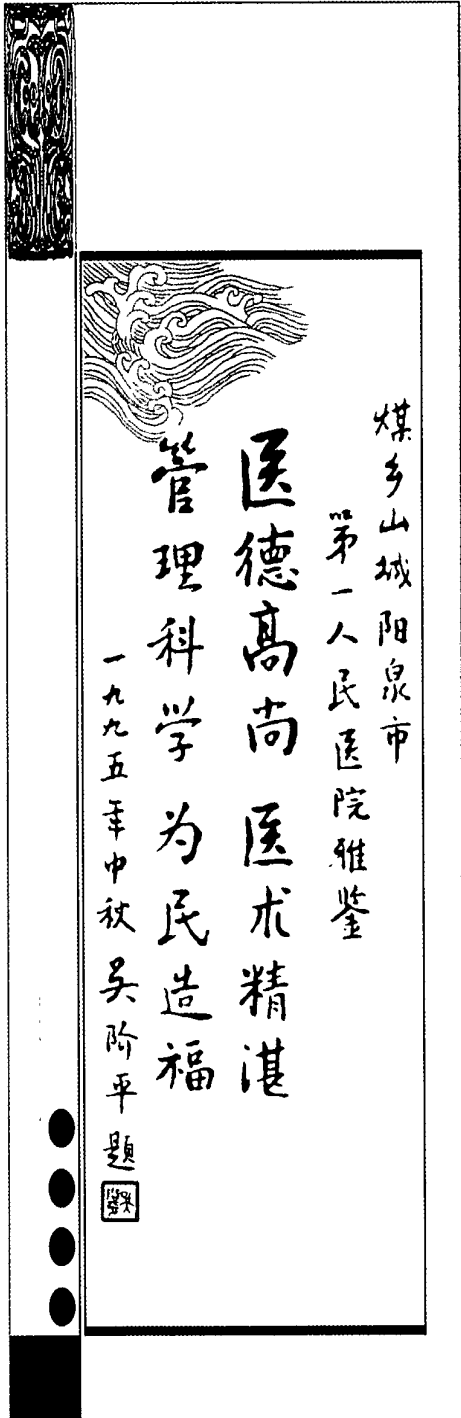 煤乡山城阳泉市
第一人民医院雅鉴
医德高尚 医术精湛
管理科学 为民造福
一九九五年中秋 吴阶平题